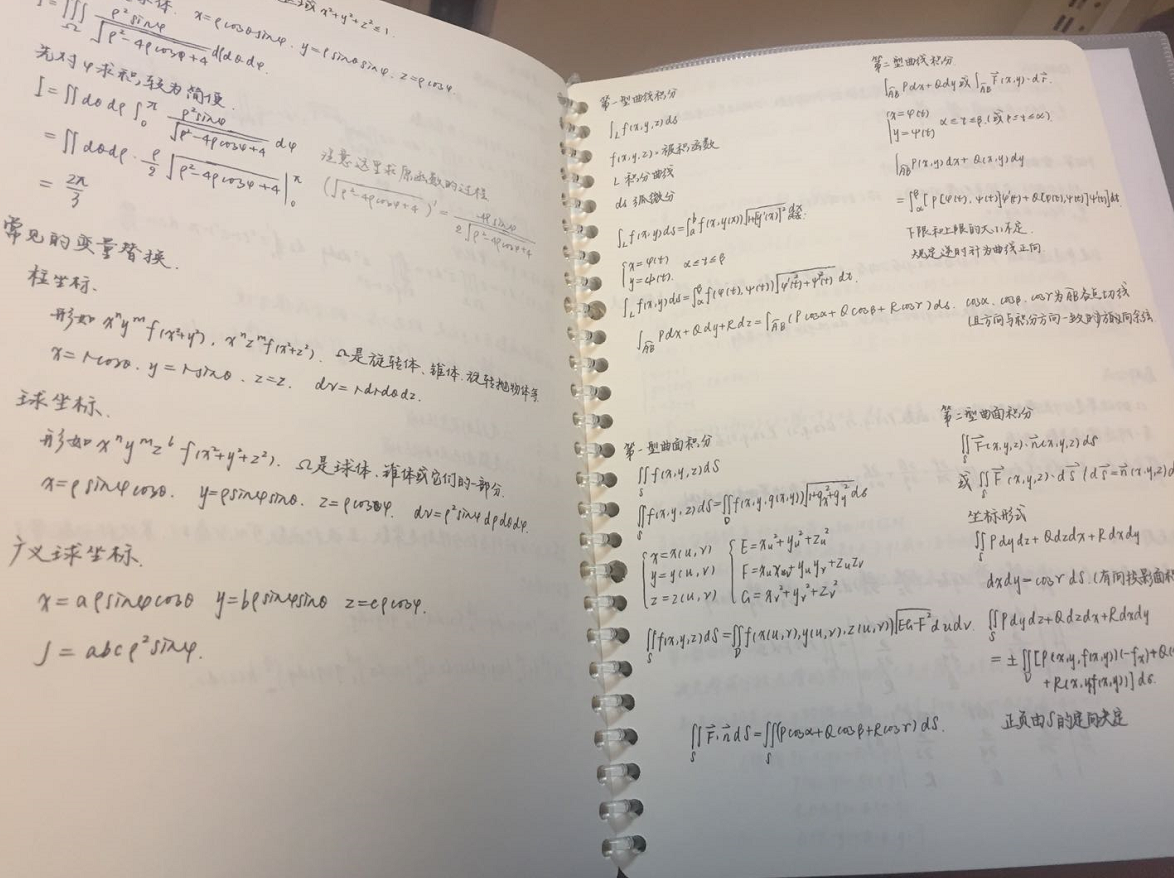 x²+y²+z²≤1.
x=ρcosθsinφ. y=ρsinθsinφ. z=ρcosφ
∭_Ω ρ²sinφ/√(ρ²-4ρcosφ+4) dρdθdφ.
先对φ求积,较为简便.
I=∬dθdρ∫₀^π ρ²sinφ/√(ρ²-4ρcosφ+4) dφ
=∬dθdρ·ρ/2 √(ρ²-4ρcosφ+4)|₀^π
=2π/3
注意这里求原函数的过程
(√(ρ²-4ρcosφ+4))'=4ρsinφ/2√(ρ²-4ρcosφ+4)
常见的变量替换.
柱坐标.
形如xⁿyᵐf(x²+y²), xⁿzᵐf(x²+z²). Ω是旋转体、锥体、旋转抛物体等
x=rcosθ. y=rsinθ. z=z. dv=rdrdθdz.
球坐标.
形如xⁿyᵐzᵇf(x²+y²+z²). Ω是球体、锥体或它们的一部分.
x=ρsinφcosθ. y=ρsinφsinθ. z=ρcosφ. dv=ρ²sinφdρdθdφ.
广义球坐标.
x=aρsinφcosθ y=bρsinφsinθ z=cρcosφ.
J=abcρ²sinφ.
第一型曲线积分
∫_L f(x,y,z)ds
f(x,y,z)·被积函数
L 积分曲线
ds 弧微分
∫_L f(x,y)ds=∫ₐᵇf(x,y(x))√(1+[y'(x)]²)dx
{x=φ(t) y=ψ(t). α≤t≤β
∫_L f(x,y)ds=∫_α^β f(φ(t),ψ(t))√(φ'²(t)+ψ'²(t)) dt
∫_AB Pdx+Qdy+Rdz=∫_AB (Pcosα+Qcosβ+Rcosγ)ds. cosα. cosβ. cosγ为AB各点切线
(且方向与积分方向一致)的方向余弦
第二型曲线积分
∫_AB Pdx+Qdy或∫_AB F(x,y)·dr.
{x=φ(t) y=ψ(t) α≤t≤β.(或β≤t≤α)
∫_AB P(x,y)dx+Q(x,y)dy
=∫_α^β[P[φ(t),ψ(t)]φ'(t)+Q[φ(t),ψ(t)]ψ'(t)]dt.
下限和上限的大小不定.
规定逆时针为曲线正向.
第一型曲面积分
∬_S f(x,y,z)dS
∬_S f(x,y,z)dS=∬_D f(x,y,g(x,y))√(1+gₓ²+g_y²)dσ
{x=x(u,v) y=y(u,v) z=z(u,v) {E=x_u²+y_u²+z_u² F=x_ux_v+y_uy_v+z_uz_v G=x_v²+y_v²+z_v²
∬_S f(x,y,z)dS=∬_D f(x(u,v),y(u,v),z(u,v))√(EG-F²)dudv.
∬_S F·n dS=∬_S(Pcosα+Qcosβ+Rcosγ)dS.
第二型曲面积分
∬_S F(x,y,z)·n(x,y,z)dS
或∬_S F(x,y,z)·dS (dS=n(x,y,z)d
坐标形式
∬_S Pdydz+Qdzdx+Rdxdy
dxdy=cosγdS (有向投影面积
∬_S Pdydz+Qdzdx+Rdxdy
=±∬_D[P(x,y,f(x,y))(-fₓ)+Q(
+R(x,y,f(x,y))]dσ.
正负由S的定向决定